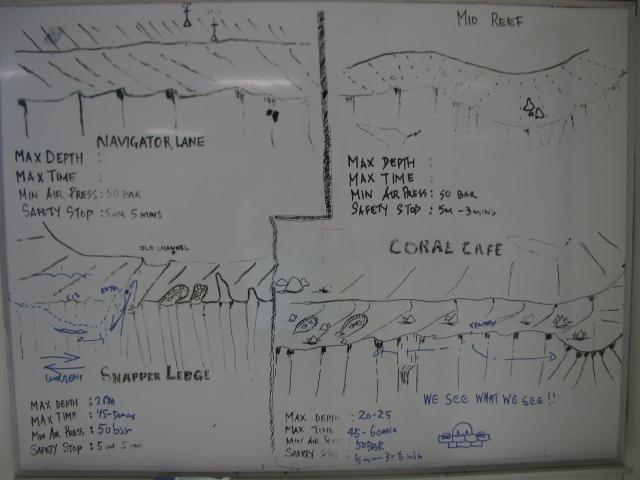 MID REEF
NAVIGATOR LANE
MAX DEPTH :
MAX TIME :
MIN AIR PRESS : 50 BAR
SAFETY STOP : 5 mtr 5 MINS
MAX DEPTH :
MAX TIME :
MIN AIR PRESS : 50 BAR
SAFETY STOP : 5M - 3 MINS
OLD CHANNEL
CORAL CAFE
KENTRY
CURRENT
SNAPPER LEDGE
MAX DEPTH :
MAX TIME : 45-50mins
MIN AIR PRESS : 50 bar
SAFETY STOP : 5 mt 5 min
WE SEE WHAT WE SEE !!
MAX DEPTH : 20-25
MAX TIME : 45-60min
MIN AIR PRESS : 50BAR
SAFETY STOP :